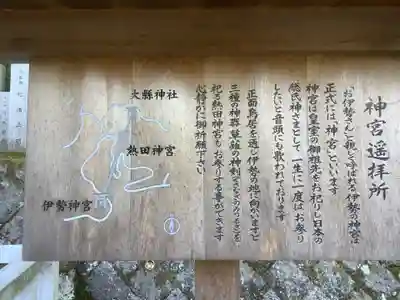 神宮遥拝所
「お伊勢さん」と親しく呼ばれる伊勢の神宮は
正式には、「神宮」といいます
神宮は皇室の御祖先をお祀りし日本の
総氏神さまとして一生に一度はお参り
したいと音頭にも歌われております
正面鳥居を通し伊勢の地に向かいますと
三種の神器草薙の神剣(くさなぎのみつるぎ)を
祀る熱田神宮もお参りする事ができます
心静かに御祈願下さい
大縣神社
熱田神宮
伊勢神宮